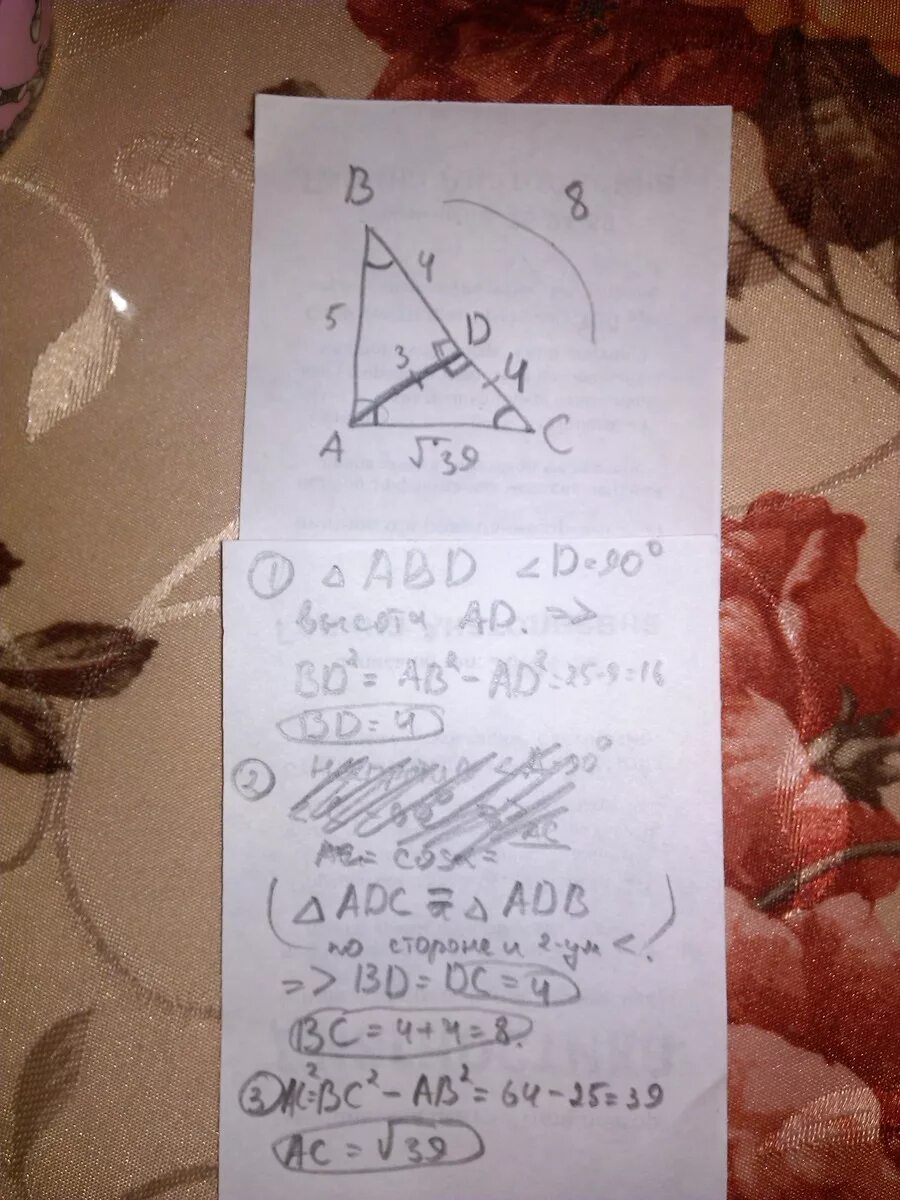 B
8
4
5
D
3
4
A
C
√39
① △ ABD <D=90°
высота AD. =>
BD² = AB² - AD² = 25-9=16
BD = 4
②
AC = cosα =
△ ADC = △ ADB
по стороне и 2-ум <.
=> BD = DC = 4
BC = 4+4=8.
③ AC²=BC² - AB² = 64-25=39
AC = √39